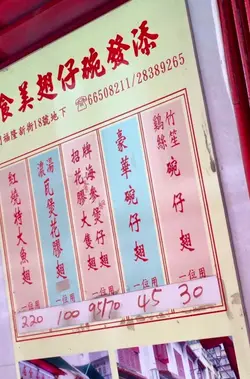 添發碗仔翅美食
門福隆新街18號地下
☎66508211/28389265
竹笙雞絲碗仔翅
一位用
30
豪華碗仔翅
一位用
45
招牌
海參煲仔翅
花膠大隻翅
一位用
95/70
濃湯瓦煲花膠翅
一位用
100
紅燒特大魚翅
一位用
220